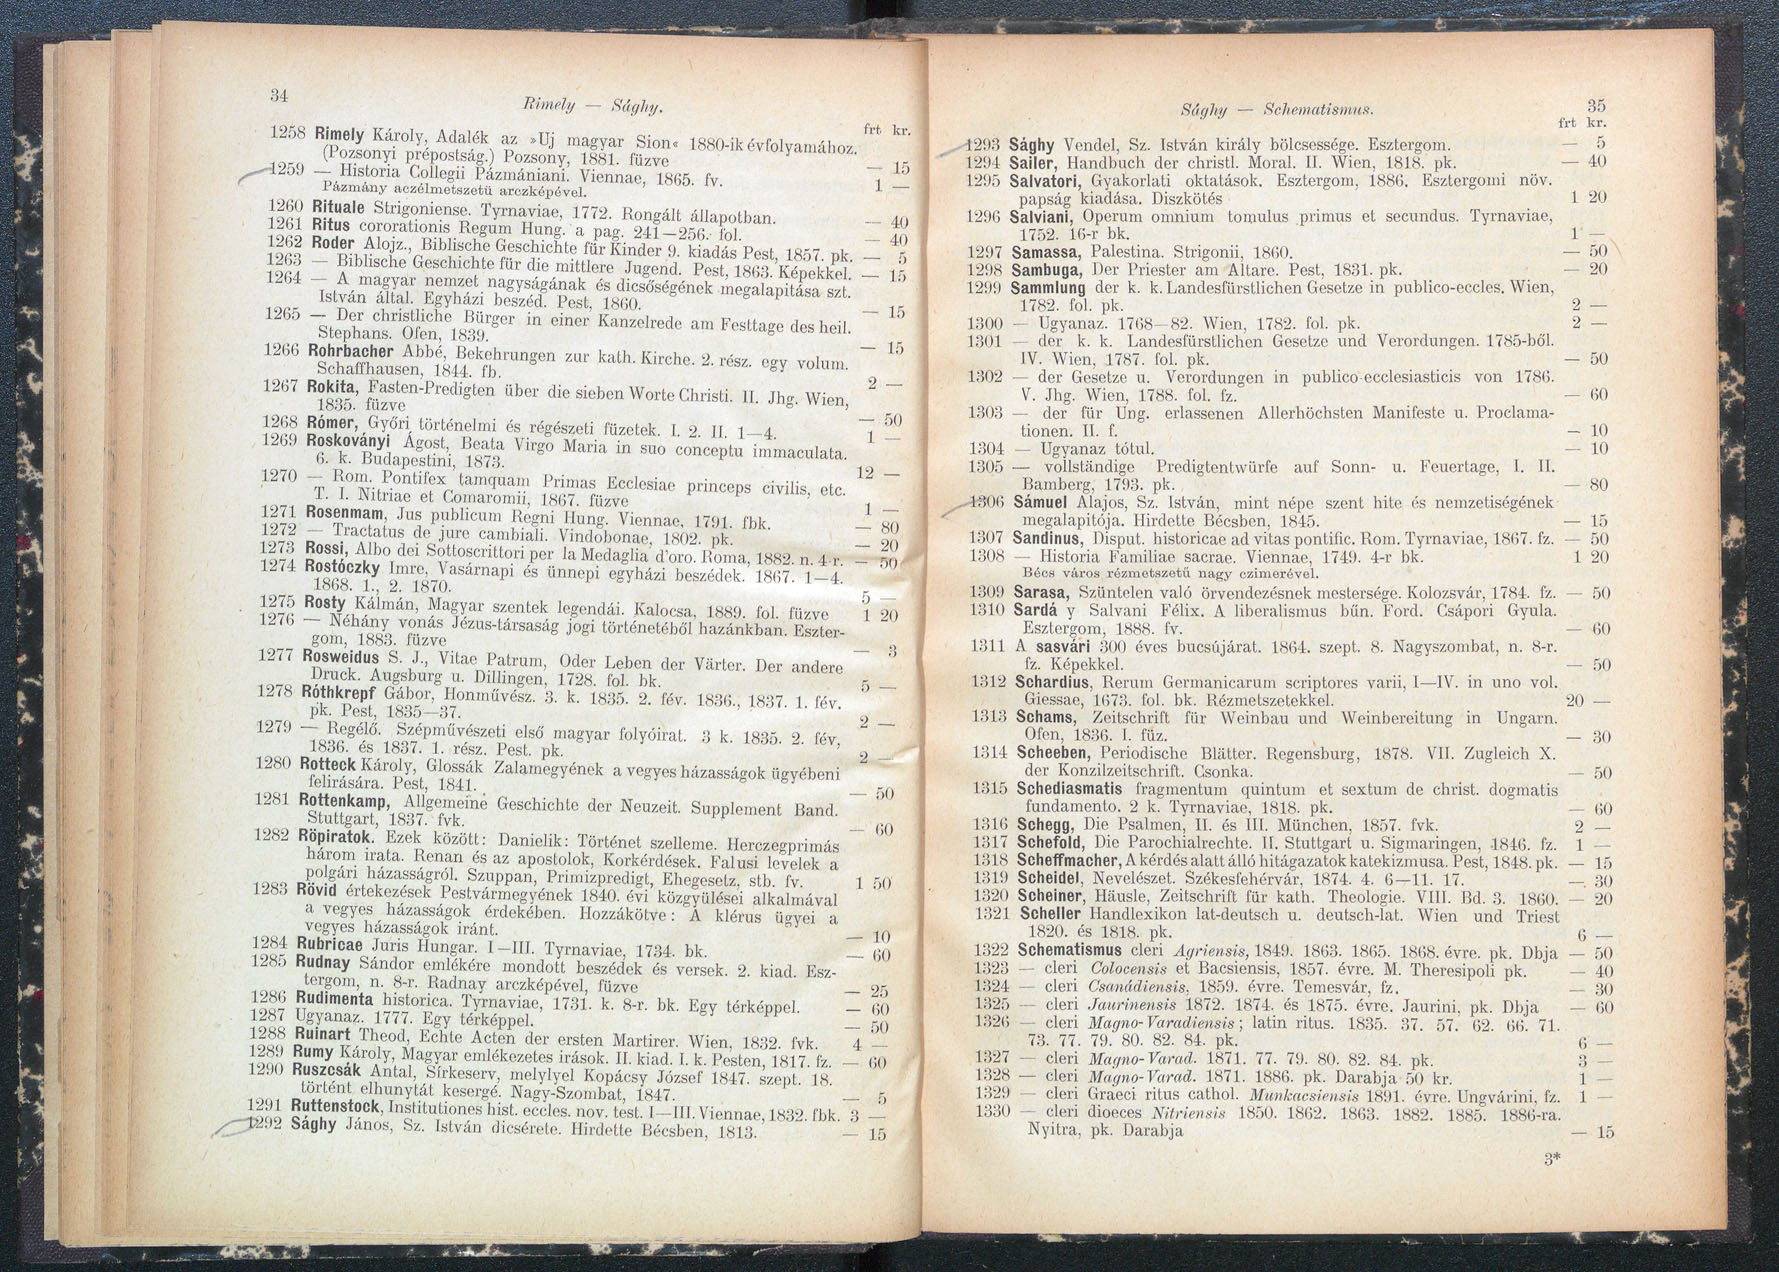 34
Rimely — Sághy.
frt kr.
1258 Rimely Károly, Adalék az »Uj magyar Sion« 1880-ik évfolyamához.
(Pozsonyi prépostság.) Pozsony, 1881. füzve — 15
1259 — Historia Collegii Pázmániani. Viennae, 1865. fv. 1 —
Pázmány aczélmetszetü arczképével.
1260 Rituale Strigoniense. Tyrnaviae, 1772. Rongált állapotban. — 40
1261 Ritus cororationis Regum Hung. a pag. 241—256. fol. — 40
1262 Roder Alojz., Biblische Geschichte für Kinder 9. kiadás Pest, 1857. pk. — 5
1263 — Biblische Geschichte für die mittlere Jugend. Pest, 1863. Képekkel. — 15
1264 — A magyar nemzet nagyságának és dicsőségének megalapitása szt.
István által. Egyházi beszéd. Pest, 1860. — 15
1265 — Der christliche Bürger in einer Kanzelrede am Festtage des heil.
Stephans. Ofen, 1839. — 15
1266 Rohrbacher Abbé, Bekehrungen zur kath. Kirche. 2. rész. egy volum.
Schaffhausen, 1844. fb. 2 —
1267 Rokita, Fasten-Predigten über die sieben Worte Christi. II. Jhg. Wien,
1835. füzve — 50
1268 Rómer, Győri történelmi és régészeti füzetek. I. 2. II. 1—4. 1 —
1269 Roskoványi Ágost, Beata Virgo Maria in suo conceptu immaculata.
6. k. Budapestini, 1873. 12 —
1270 — Rom. Pontifex tamquam Primas Ecclesiae princeps civilis, etc.
T. I. Nitriae et Comaromii, 1867. füzve 1 —
1271 Rosenmam, Jus publicum Regni Hung. Viennae, 1791. fbk. — 80
1272 — Tractatus de jure cambiali. Vindobonae, 1802. pk. — 20
1273 Rossi, Albo dei Sottoscrittori per la Medaglia d'oro. Roma, 1882. n. 4-r. — 50
1274 Rostóczky Imre, Vasárnapi és ünnepi egyházi beszédek. 1867. 1—4.
1868. 1., 2. 1870. 5 —
1275 Rosty Kálmán, Magyar szentek legendái. Kalocsa, 1889. fol. füzve 1 20
1276 — Néhány vonás Jézus-társaság jogi történetéből hazánkban. Eszter-
gom, 1883. füzve — 3
1277 Rosweidus S. J., Vitae Patrum, Oder Leben der Värter. Der andere
Druck. Augsburg u. Dillingen, 1728. fol. bk. 5 —
1278 Róthkrepf Gábor, Honművész. 3. k. 1835. 2. fév. 1836., 1837. 1. fév.
pk. Pest, 1835—37. 2 —
1279 — Regélő. Szépművészeti első magyar folyóirat. 3 k. 1835. 2. fév,
1836. és 1837. 1. rész. Pest. pk. 2 —
1280 Rotteck Károly, Glossák Zalamegyének a vegyes házasságok ügyébeni
felirására. Pest, 1841. — 50
1281 Rottenkamp, Allgemeine Geschichte der Neuzeit. Supplement Band.
Stuttgart, 1837. fvk. — 60
1282 Röpiratok. Ezek között: Danielik: Történet szelleme. Herczegprimás
három irata. Renan és az apostolok, Korkérdések. Falusi levelek a
polgári házasságról. Szuppan, Primizpredigt, Ehegesetz, stb. fv. 1 50
1283 Rövid értekezések Pestvármegyének 1840. évi közgyülései alkalmával
a vegyes házasságok érdekében. Hozzákötve: A klérus ügyei a
vegyes házasságok iránt. — 10
1284 Rubricae Juris Hungar. I—III. Tyrnaviae, 1734. bk. — 60
1285 Rudnay Sándor emlékére mondott beszédek és versek. 2. kiad. Esz-
tergom, n. 8-r. Radnay arczképével, füzve — 25
1286 Rudimenta historica. Tyrnaviae, 1731. k. 8-r. bk. Egy térképpel. — 60
1287 Ugyanaz. 1777. Egy térképpel. — 50
1288 Ruinart Theod, Echte Acten der ersten Martirer. Wien, 1832. fvk. 4 —
1289 Rumy Károly, Magyar emlékezetes irások. II. kiad. I. k. Pesten, 1817. fz. — 60
1290 Ruszcsák Antal, Sírkeserv, melylyel Kopácsy József 1847. szept. 18.
történt elhunytát kesergé. Nagy-Szombat, 1847. — 5
1291 Ruttenstock, Institutiones hist. eccles. nov. test. I—III. Viennae, 1832. fbk. 3 —
1292 Sághy János, Sz. István dicsérete. Hirdette Bécsben, 1813. — 15
Sághy — Schematismus.
35
frt kr.
1293 Sághy Vendel, Sz. István király bölcsessége. Esztergom. — 5
1294 Sailer, Handbuch der christl. Moral. II. Wien, 1818. pk. — 40
1295 Salvatori, Gyakorlati oktatások. Esztergom, 1886. Esztergomi növ.
papság kiadása. Diszkötés 1 20
1296 Salviani, Operum omnium tomulus primus et secundus. Tyrnaviae,
1752. 16-r bk. 1 —
1297 Samassa, Palestina. Strigonii, 1860. — 50
1298 Sambuga, Der Priester am Altare. Pest, 1831. pk. — 20
1299 Sammlung der k. k. Landesfürstlichen Gesetze in publico-eccles. Wien,
1782. fol. pk. 2 —
1300 — Ugyanaz. 1768—82. Wien, 1782. fol. pk. 2 —
1301 — der k. k. Landesfürstlichen Gesetze und Verordungen. 1785-ből.
IV. Wien, 1787. fol. pk. — 50
1302 — der Gesetze u. Verordungen in publico ecclesiasticis von 1786.
V. Jhg. Wien, 1788. fol. fz. — 60
1303 — der für Ung. erlassenen Allerhöchsten Manifeste u. Proclama-
tionen. II. f. — 10
1304 — Ugyanaz tótul. — 10
1305 — vollständige Predigtentwürfe auf Sonn- u. Feuertage, I. II.
Bamberg, 1793. pk. — 80
1306 Sámuel Alajos, Sz. István, mint népe szent hite és nemzetiségének
megalapitója. Hirdette Bécsben, 1845. — 15
1307 Sandinus, Disput. historicae ad vitas pontific. Rom. Tyrnaviae, 1867. fz. — 50
1308 — Historia Familiae sacrae. Viennae, 1749. 4-r bk. 1 20
Bécs város rézmetszetü nagy czimerével.
1309 Sarasa, Szüntelen való örvendezésnek mestersége. Kolozsvár, 1784. fz. — 50
1310 Sardá y Salvani Félix. A liberalismus bűn. Ford. Csápori Gyula.
Esztergom, 1888. fv. — 60
1311 A sasvári 300 éves bucsújárat. 1864. szept. 8. Nagyszombat, n. 8-r.
fz. Képekkel. — 50
1312 Schardius, Rerum Germanicarum scriptores varii, I—IV. in uno vol.
Giessae, 1673. fol. bk. Rézmetszetekkel. 20 —
1313 Schams, Zeitschrift für Weinbau und Weinbereitung in Ungarn.
Ofen, 1836. I. füz. — 30
1314 Scheeben, Periodische Blätter. Regensburg, 1878. VII. Zugleich X.
der Konzilzeitschrift. Csonka. — 50
1315 Schediasmatis fragmentum quintum et sextum de christ. dogmatis
fundamento. 2 k. Tyrnaviae, 1818. pk. — 60
1316 Schegg, Die Psalmen, II. és III. München, 1857. fvk. 2 —
1317 Schefold, Die Parochialrechte. II. Stuttgart u. Sigmaringen, 1846. fz. 1 —
1318 Scheffmacher, A kérdés alatt álló hitágazatok katekizmusa. Pest, 1848. pk. — 15
1319 Scheidel, Nevelészet. Székesfehérvár, 1874. 4. 6—11. 17. — 30
1320 Scheiner, Häusle, Zeitschrift für kath. Theologie. VIII. Bd. 3. 1860. — 20
1321 Scheller Handlexikon lat-deutsch u. deutsch-lat. Wien und Triest
1820. és 1818. pk. 6 —
1322 Schematismus cleri Agriensis, 1849. 1863. 1865. 1868. évre. pk. Dbja — 50
1323 — cleri Colocensis et Bacsiensis, 1857. évre. M. Theresipoli pk. — 40
1324 — cleri Csanádiensis, 1859. évre. Temesvár, fz. — 30
1325 — cleri Jaurinensis 1872. 1874. és 1875. évre. Jaurini, pk. Dbja — 60
1326 — cleri Magno-Varadiensis; latin ritus. 1835. 37. 57. 62. 66. 71.
73. 77. 79. 80. 82. 84. pk. 6 —
1327 — cleri Magno-Varad. 1871. 77. 79. 80. 82. 84. pk. 3 —
1328 — cleri Magno-Varad. 1871. 1886. pk. Darabja 50 kr. 1 —
1329 — cleri Graeci ritus cathol. Munkacsiensis 1891. évre. Ungvárini, fz. 1 —
1330 — cleri dioeces Nitriensis 1850. 1862. 1863. 1882. 1885. 1886-ra.
Nyitra, pk. Darabja — 15
3*